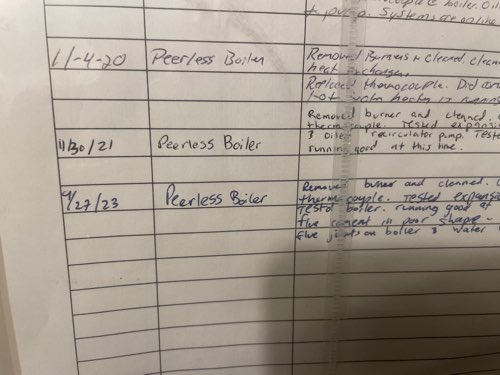 boiler. Oil
+ pump. Systems are online
11-4-20 Peerless Boiler Removed Burners & cleaned. clean
heat exchanger.
Replaced thermocouple. Did
hot water
Removed burner and cleaned.
thermocouple. Tested expansi
11/30/21 Peerless Boiler & oiled recirculator pump. Teste
running good at this time.
4/27/23 Peerless Boiler Removed burner and cleaned.
thermocouple. Tested expansi
Testd boiler. running good at
flue cement in poor shape -
flue joints on boiler & water